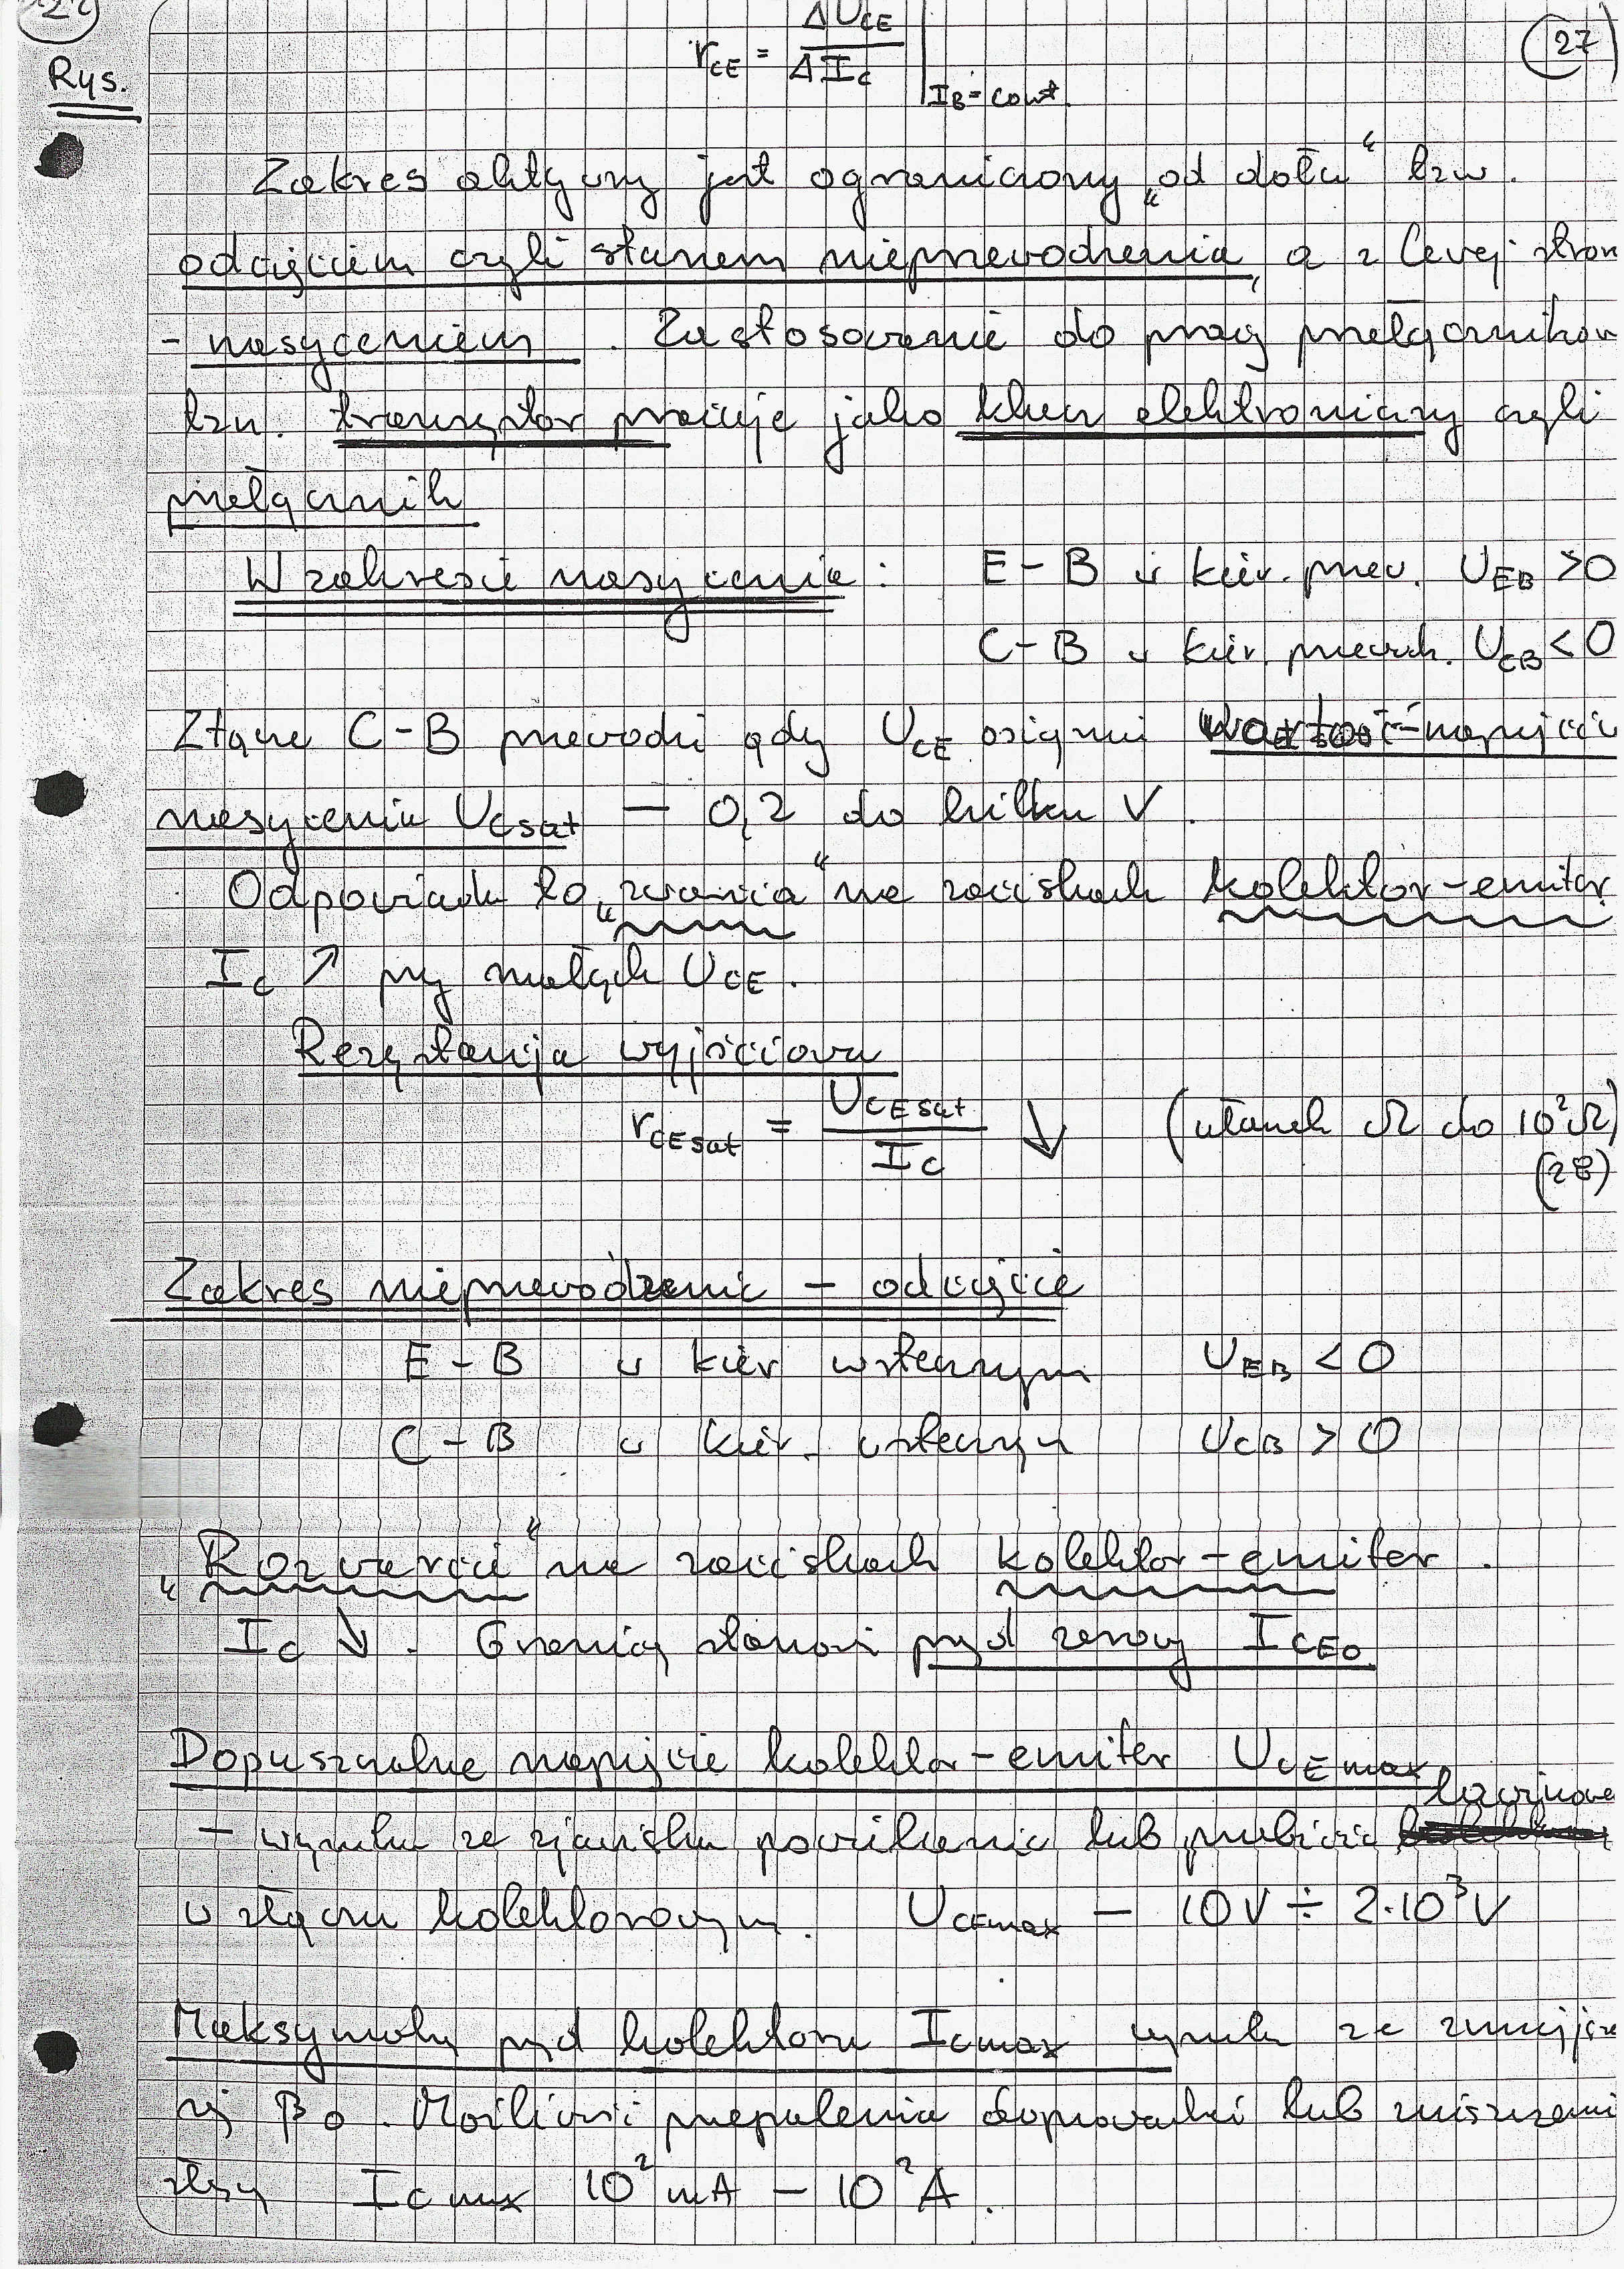 Rys.
r_CE = ΔU_CE / ΔI_C | I_B = const.
(27)
Zakres aktywny jest ograniczony „od dołu" tzw.
odcięciem czyli stanem nieprzewodzenia, a z lewej stron
- nasyceniem. Zastosowanie do pracy przełączników
tzn. tranzystor pracuje jako klucz elektroniczny czyli
przełącznik
W zakresie nasycenia: E-B w kier. przew. U_EB > 0
C-B w kier. przewodz. U_CB < 0
Złącze C-B przewodzi gdy U_CE osiągnie wartość napięcia
nasycenia U_Csat — 0,2 do kilku V.
Odpowiada to „zwarcia" na zaciskach kolektor-emiter.
I_C ↗ przy małych U_CE.
Rezystancja wyjściowa
r_CEsat = U_CEsat / I_C ↓ (ułamek Ω do 10² Ω)
(28)
Zakres nieprzewodzenia - odcięcie
E-B w kier wstecznym U_EB < 0
C-B w kier. wstecznym U_CB > 0
„Rozwarcie" na zaciskach kolektor-emiter.
I_C ↓. Granicę stanowi prąd zerowy I_CEO.
Dopuszczalne napięcie kolektor-emiter U_CEmax
- wynika ze zjawiska powielania lub przebicia lawinowe
w złączu kolektorowym. U_CEmax — 10V ÷ 2·10³V
Maksymalny prąd kolektora I_Cmax wynika ze zmniejsze
się β₀. Możliwość przepalenia doprowadzeń lub zniszczeni
złączy I_C max 10² mA - 10² A.